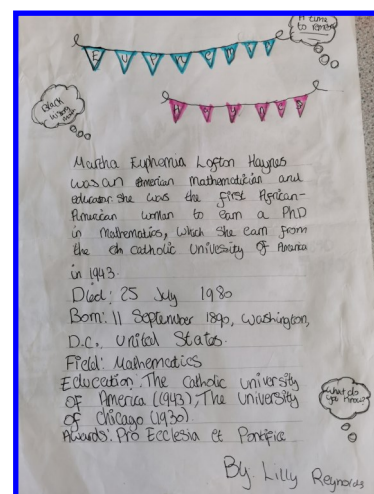 A time
to remember
Euphemia
Haynes
Black
history
month
Martha Euphemia Lofton Haynes
was an American mathematician and
educator. she was the first African-
American woman to earn a PhD
in Mathematics, which she earn from
the catholic University of America
in 1943.
Died: 25 July 1980
Born: 11 September 1890, Washington,
D.C., United States.
Field: Mathematics
Education: The catholic university
of America (1943), The University
of Chicago (1930)
Awards: Pro Ecclesia et Pontifice
what do
you know?
By: Lilly Reynolds